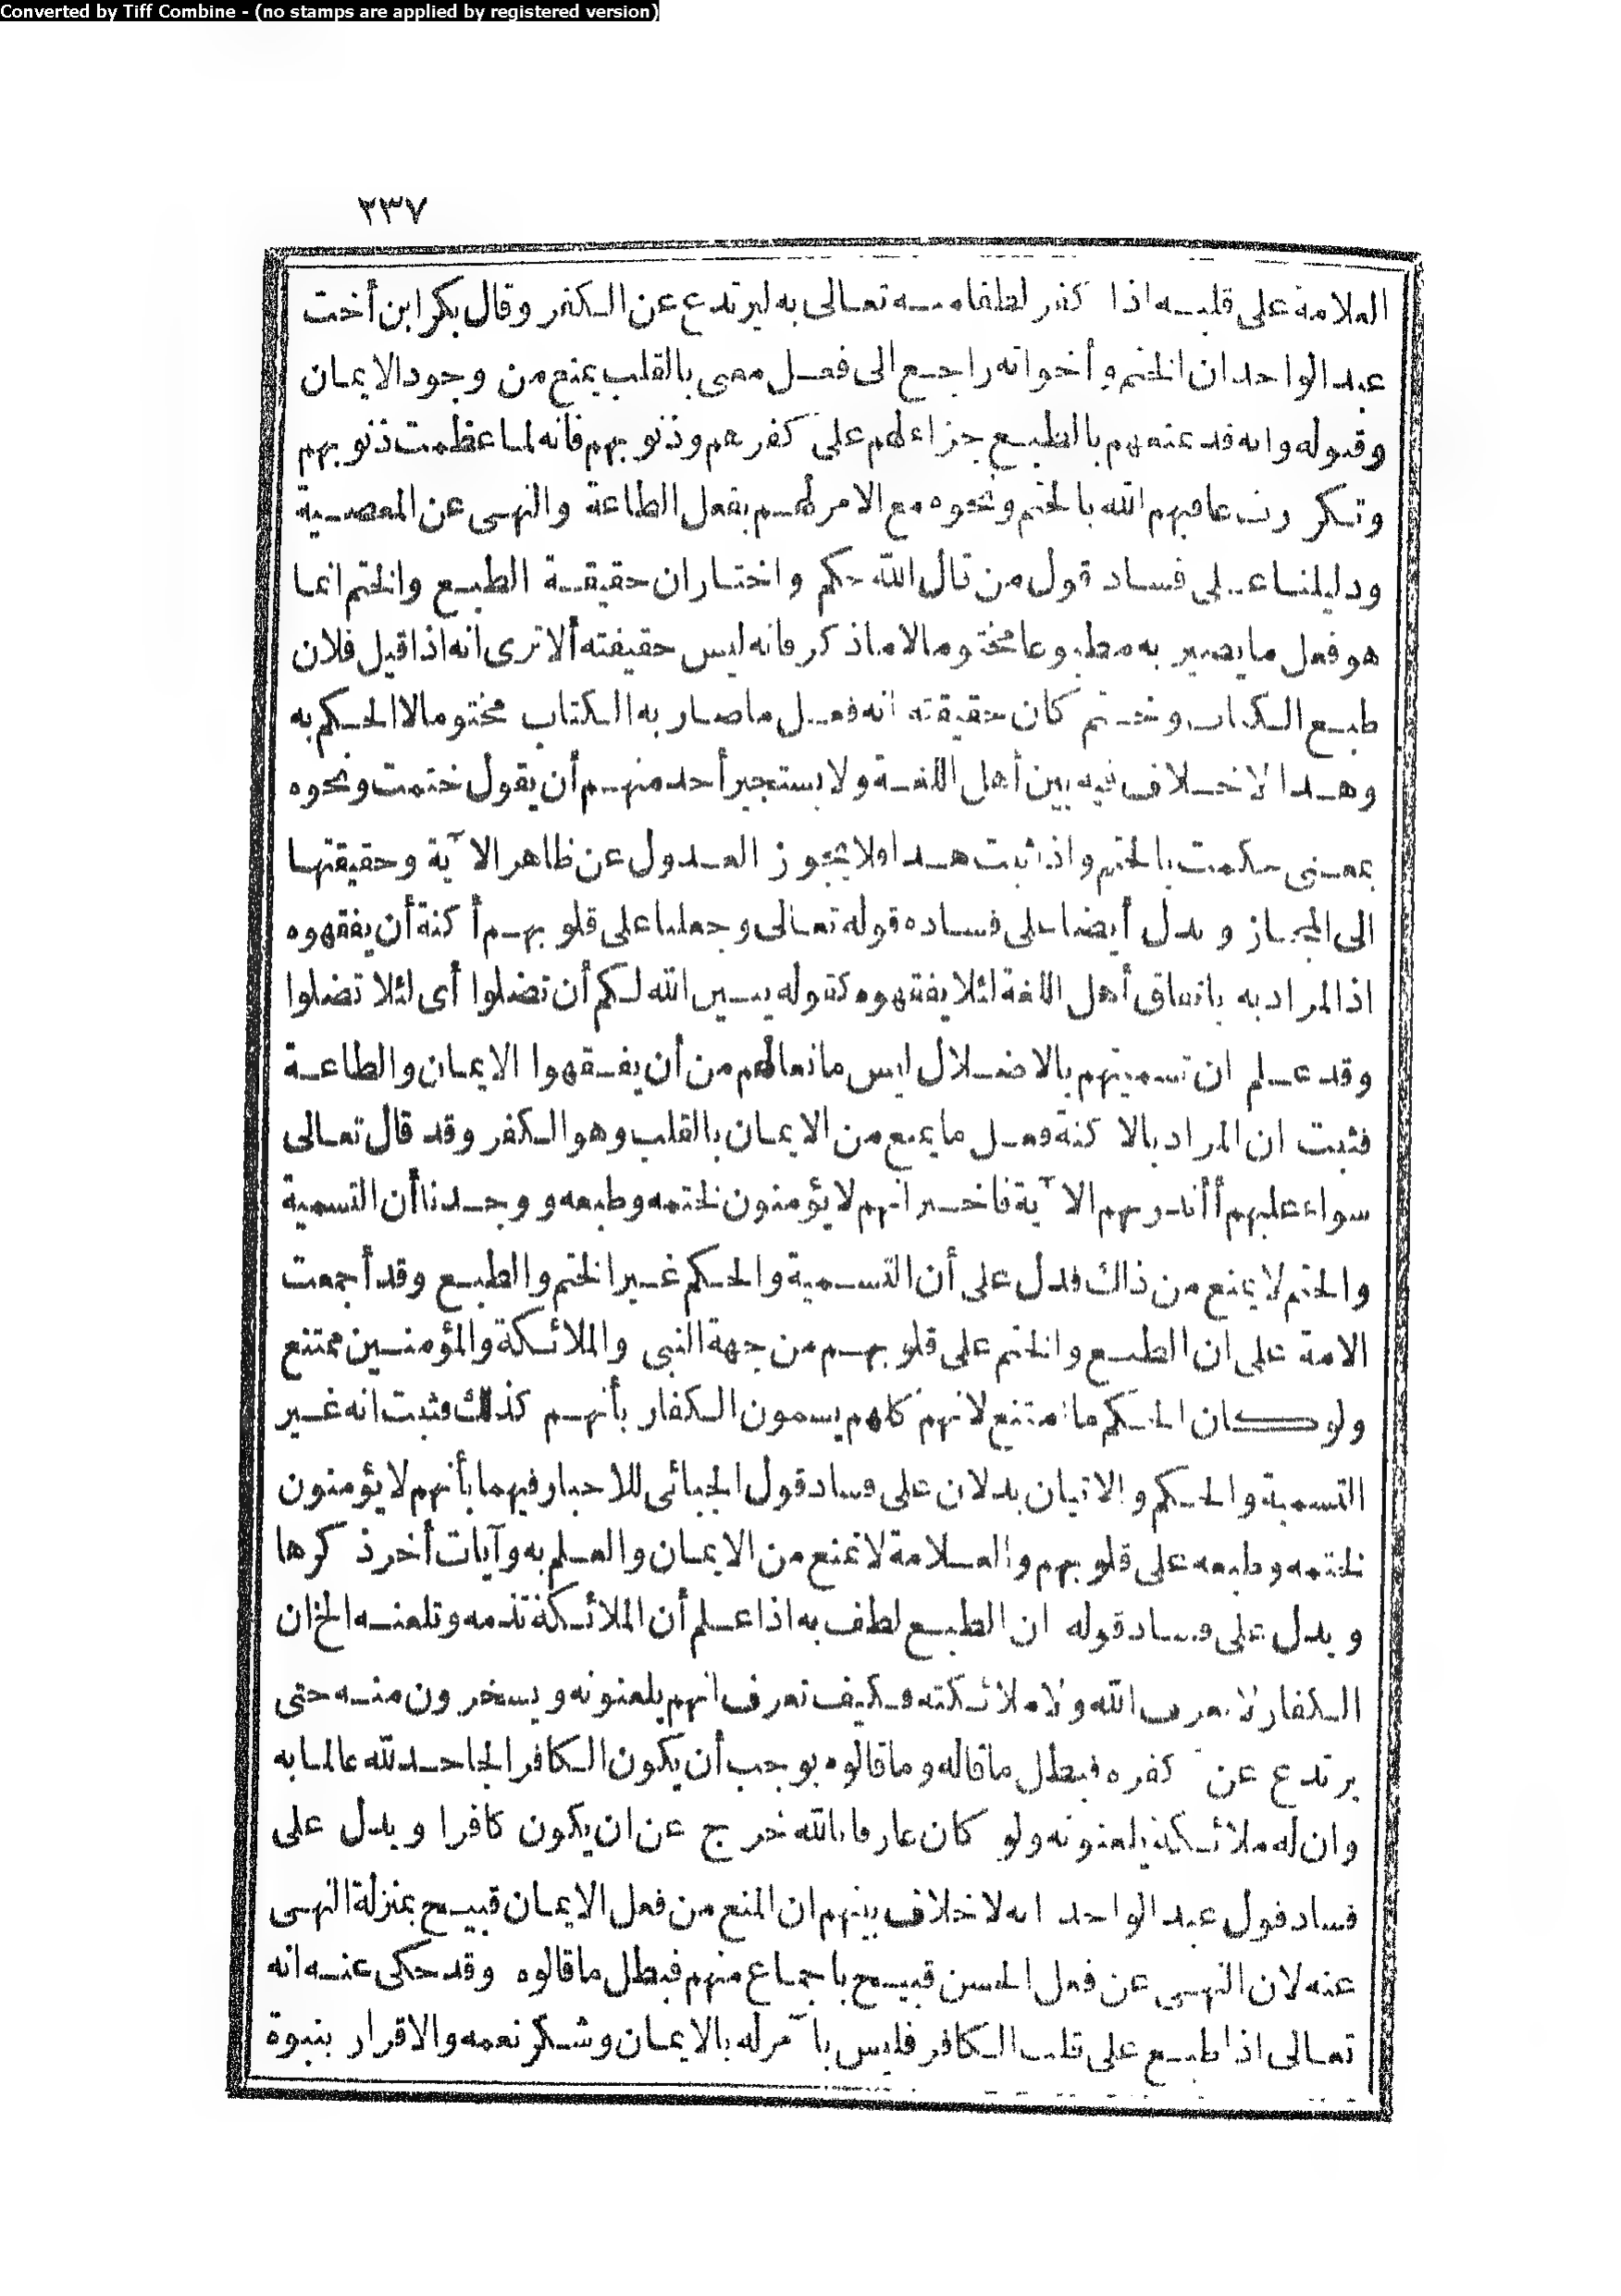 Converted by Tiff Combine - (no stamps are applied by registered version)
٢٣٧
العلامة على قلبه اذا كفر لطفا منه تعالى به ليرتدع عن الكفر وقال بكر ابن أخت
عبد الواحد ان الختم وأخواته راجع الى فعل معنى بالقلب يمنع من وجود الايمان
وقبوله وانه قد عنهم بالطبع جزاء لهم على كفرهم وذنوبهم فانه لما عظمت ذنوبهم
وتكررت عاقبهم الله بالختم ونحوه مع الامر لهم بفعل الطاعة والنهى عن المعصية
ودليلنا على فساد قول من قال الله حكم واختار ان حقيقة الطبع والختم انما
هو فعل ما يصير به مطبوعا مختوما لا ما ذكر فانه ليس حقيقته ألا ترى انه اذا قيل فلان
طبع الكتاب وختم كان حقيقته انه فعل ما صار به الكتاب مختوما لا الحكم به
وهذا لا خلاف فيه بين أهل اللغة ولا يستجير أحد منهم أن يقول ختمت ونحوه
بمعنى حكمت بالختم واذ ثبت هذا فلا يجوز العدول عن ظاهر الآية وحقيقتها
الى المجاز ويدل أيضا على فساده قوله تعالى وجعلنا على قلوبهم أكنة أن يفقهوه
اذ المراد به باتفاق أهل اللغة لئلا يفقهوه كقوله يبين الله لكم أن تضلوا أى لئلا تضلوا
وقد علم ان تسميتهم بالاضلال ليس مانعا لهم من أن يفقهوا الايمان والطاعة
فثبت ان المراد بالا كنة فعل ما يمنع من الايمان بالقلب وهو الكفر وقد قال تعالى
سواء عليهم أأنذرتهم الآية فاخبر انهم لا يؤمنون لختمه وطبعه ووجدنا أن التسمية
والختم لا يمنع من ذلك فدل على أن التسمية والحكم غير الختم والطبع وقد أجمعت
الامة على ان الطبع والختم على قلوبهم من جهة النبى والملائكة والمؤمنين ممتنع
ولو كان الحكم ما امتنع لانهم كلهم يسمون الكفار بأنهم كذلك فثبت انه غير
التسمية والحكم والاتيان يدلان على فساد قول الجبائى للاخبار فيهما بأنهم لا يؤمنون
لختمه وطبعه على قلوبهم والعلامة لا تمنع من الايمان والعلم به وآيات أخر ذكرها
ويدل على فساد قوله ان الطبع لطف به اذا علم أن الملائكة تذمه وتلعنه الخ ان
الكفار لا يعرف الله ولا ملائكته فكيف تعرف انهم يلعنونه ويسخرون منه حتى
يرتدع عن كفره فبطل ما قاله وما قالوه يوجب أن يكون الكافر الجاحد لله عالما به
وان له ملائكة يلعنونه ولو كان عارفا بالله خرج عن ان يكون كافرا ويدل على
فساد قول عبد الواحد انه لا خلاف بينهم ان المنع من فعل الايمان قبيح بمنزلة النهى
عنه لان النهى عن فعل الحسن قبيح باجماع منهم فبطل ما قالوه وقد حكى عنه انه
تعالى اذا طبع على قلب الكافر فليس بآمر له بالايمان وشكر نعمه والاقرار بنبوة